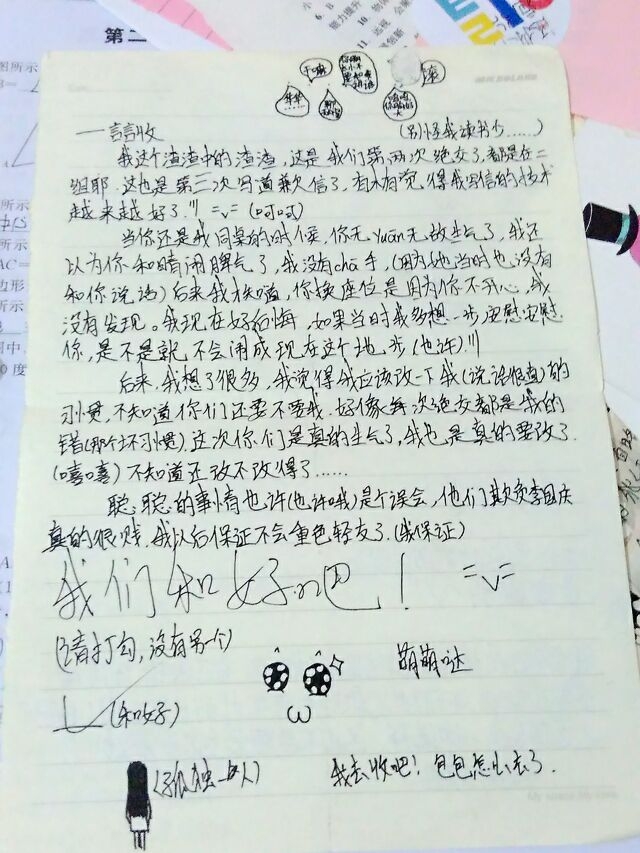 干嘛
哗哗……
MR.BOLAND
一言言收
(别怪我读书少……)
我这个渣渣中的渣渣，这是我们第两次绝交了，都是在二
组耶.这也是第三次写道歉信了，有木有觉得我写信的技术
越来越好了.!! =v= (叮叮)
当你还是我同桌的时候，你无yuān无故生气了，我还
以为你和晴闹脾气了，我没有chā手，(因为她当时也没有
和你说话)后来我才知道，你换座位是因为你不开心，我
没有发现。我现在好后悔，如果当时我多想一步，安慰安慰
你，是不是就不会闹成现在这个地步(也许).!!
后来，我想了很多，我觉得我应该改一下我(说话很直)的
习惯，不知道你们还要不要我.好像每次绝交都是我的
错(那个坏习惯).这次你们是真的生气了，我也是真的要改了.
(嘻嘻)不知道还改不改得了……
聪聪的事情也许(也许哦)是个误会，他们欺负李国庆
真的很贱.我以后保证不会重色轻友了.(我保证)
我们和好吧！ =v=
(请打勾，没有另一个)
萌萌哒
(和好)
(孤独一人)
我去收吧！包包怎么去了.